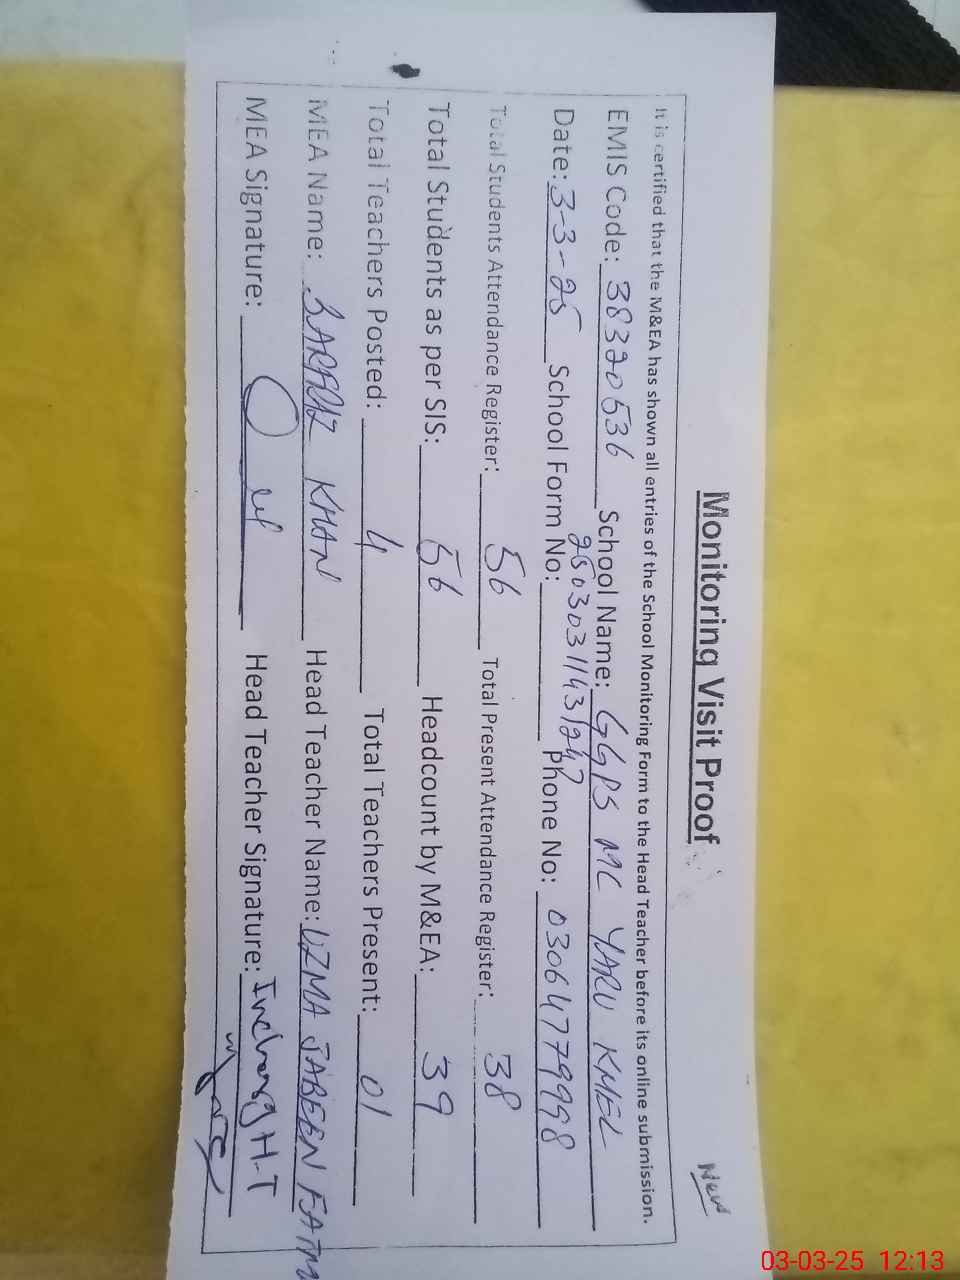 Monitoring Visit Proof
New
It is certified that the M&EA has shown all entries of the School Monitoring Form to the Head Teacher before its online submission.
EMIS Code: 38320536 School Name: GGPS MC YARU KHEL
Date: 3-3-25 School Form No: 25030311431247 Phone No: 03064779998
Total Students Attendance Register: 56 Total Present Attendance Register: 38
Total Students as per SIS: 56 Headcount by M&EA: 39
Total Teachers Posted: 4 Total Teachers Present: 01
MEA Name: SARFRAZ KHAN Head Teacher Name: UZMA JABEEN FATM
MEA Signature: Head Teacher Signature: Incharg H-T
03-03-25 12:13